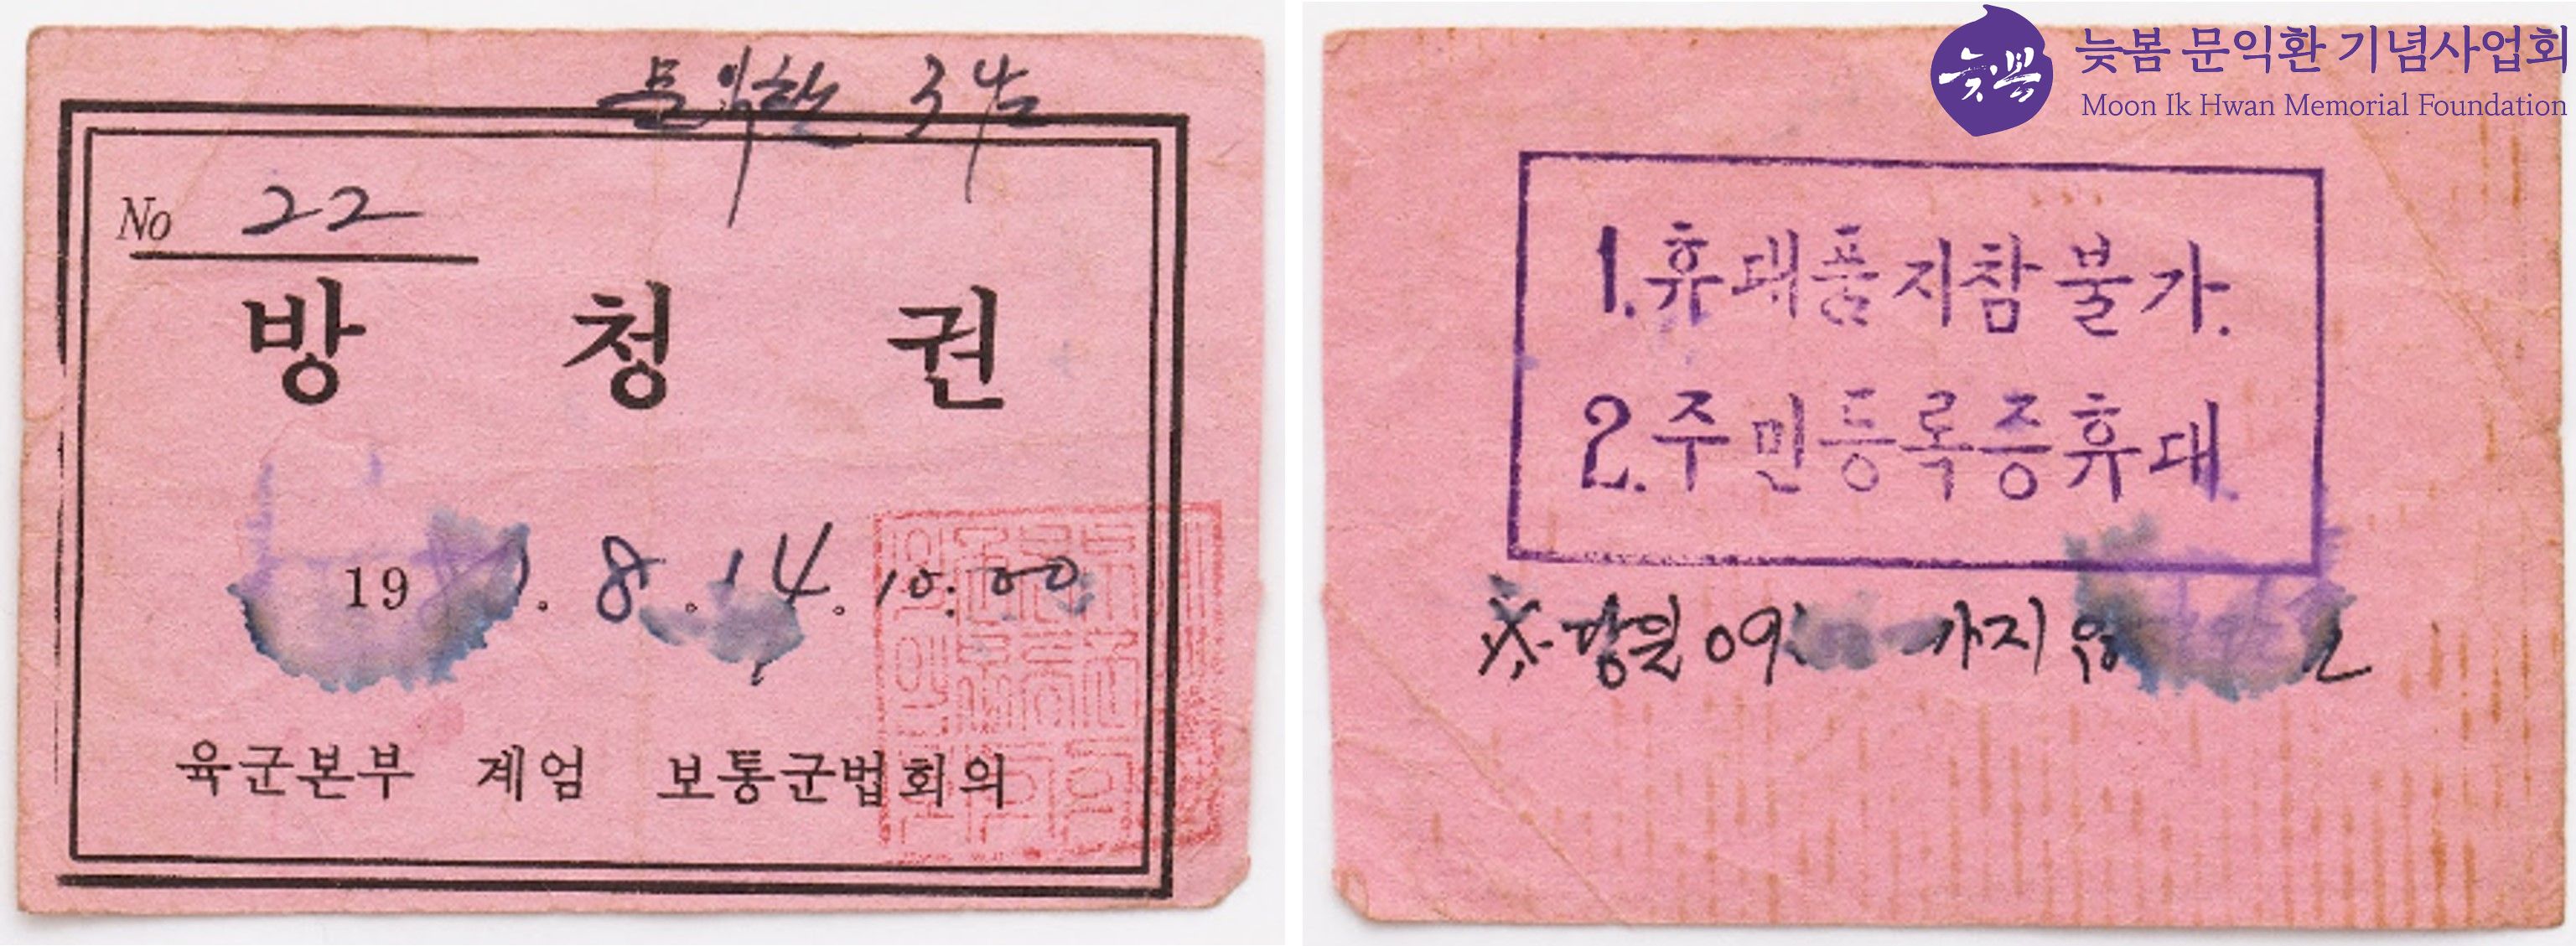 문익환 3남
No 22
방 청 권
1980. 8. 14. 10:00
육군본부 계엄 보통군법회의
늦봄
늦봄 문익환 기념사업회
Moon Ik Hwan Memorial Foundation
1. 휴대품지참불가.
2. 주민등록증휴대.
※ 당일 09: 까지